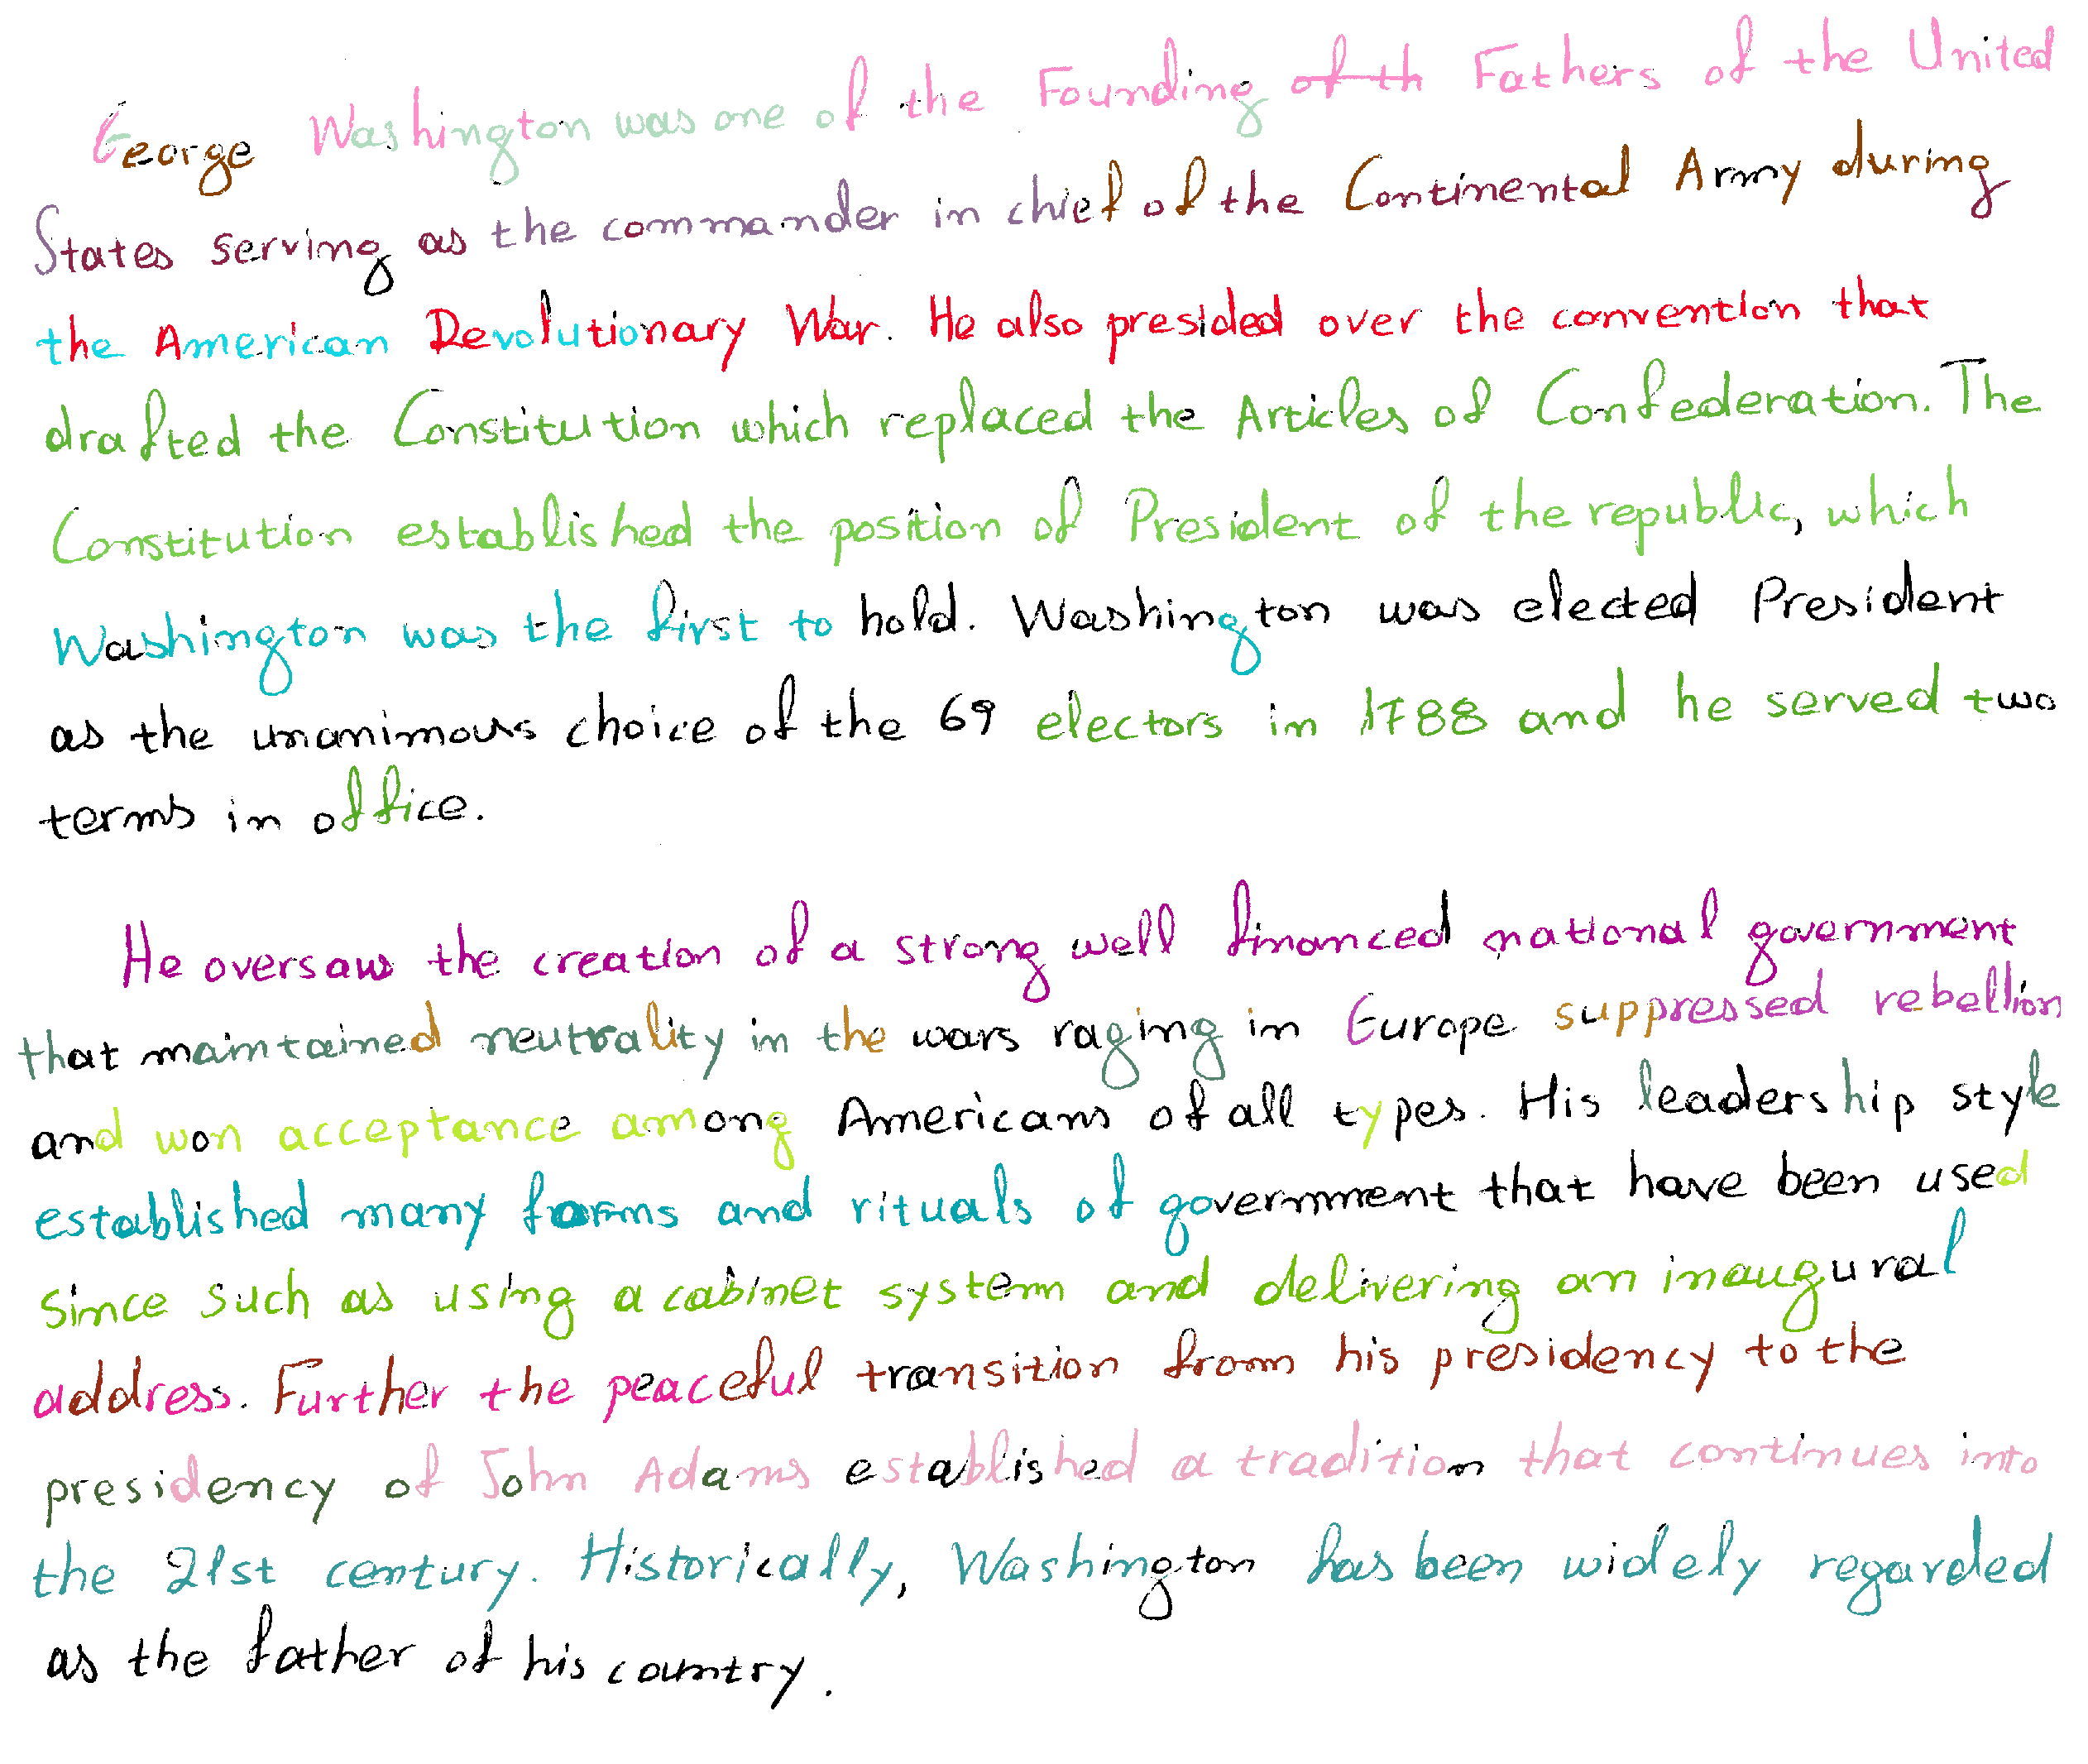 George Washington was one of the Founding of th Fathers of the United
States serving as the commander in chief of the Continental Army during
the American Revolutionary War. He also presided over the convention that
drafted the Constitution which replaced the Articles of Confederation. The
Constitution established the position of President of the republic, which
Washington was the first to hold. Washington was elected President
as the unanimous choice of the 69 electors in 1788 and he served two
terms in office.
He oversaw the creation of a strong well financed national government
that maintained neutrality in the wars raging in Europe suppressed rebellion
and won acceptance among Americans of all types. His leadership style
established many forms and rituals of government that have been used
since such as using a cabinet system and delivering an inaugural
address. Further the peaceful transition from his presidency to the
presidency of John Adams established a tradition that continues into
the 21st century. Historically, Washington has been widely regarded
as the father of his country.